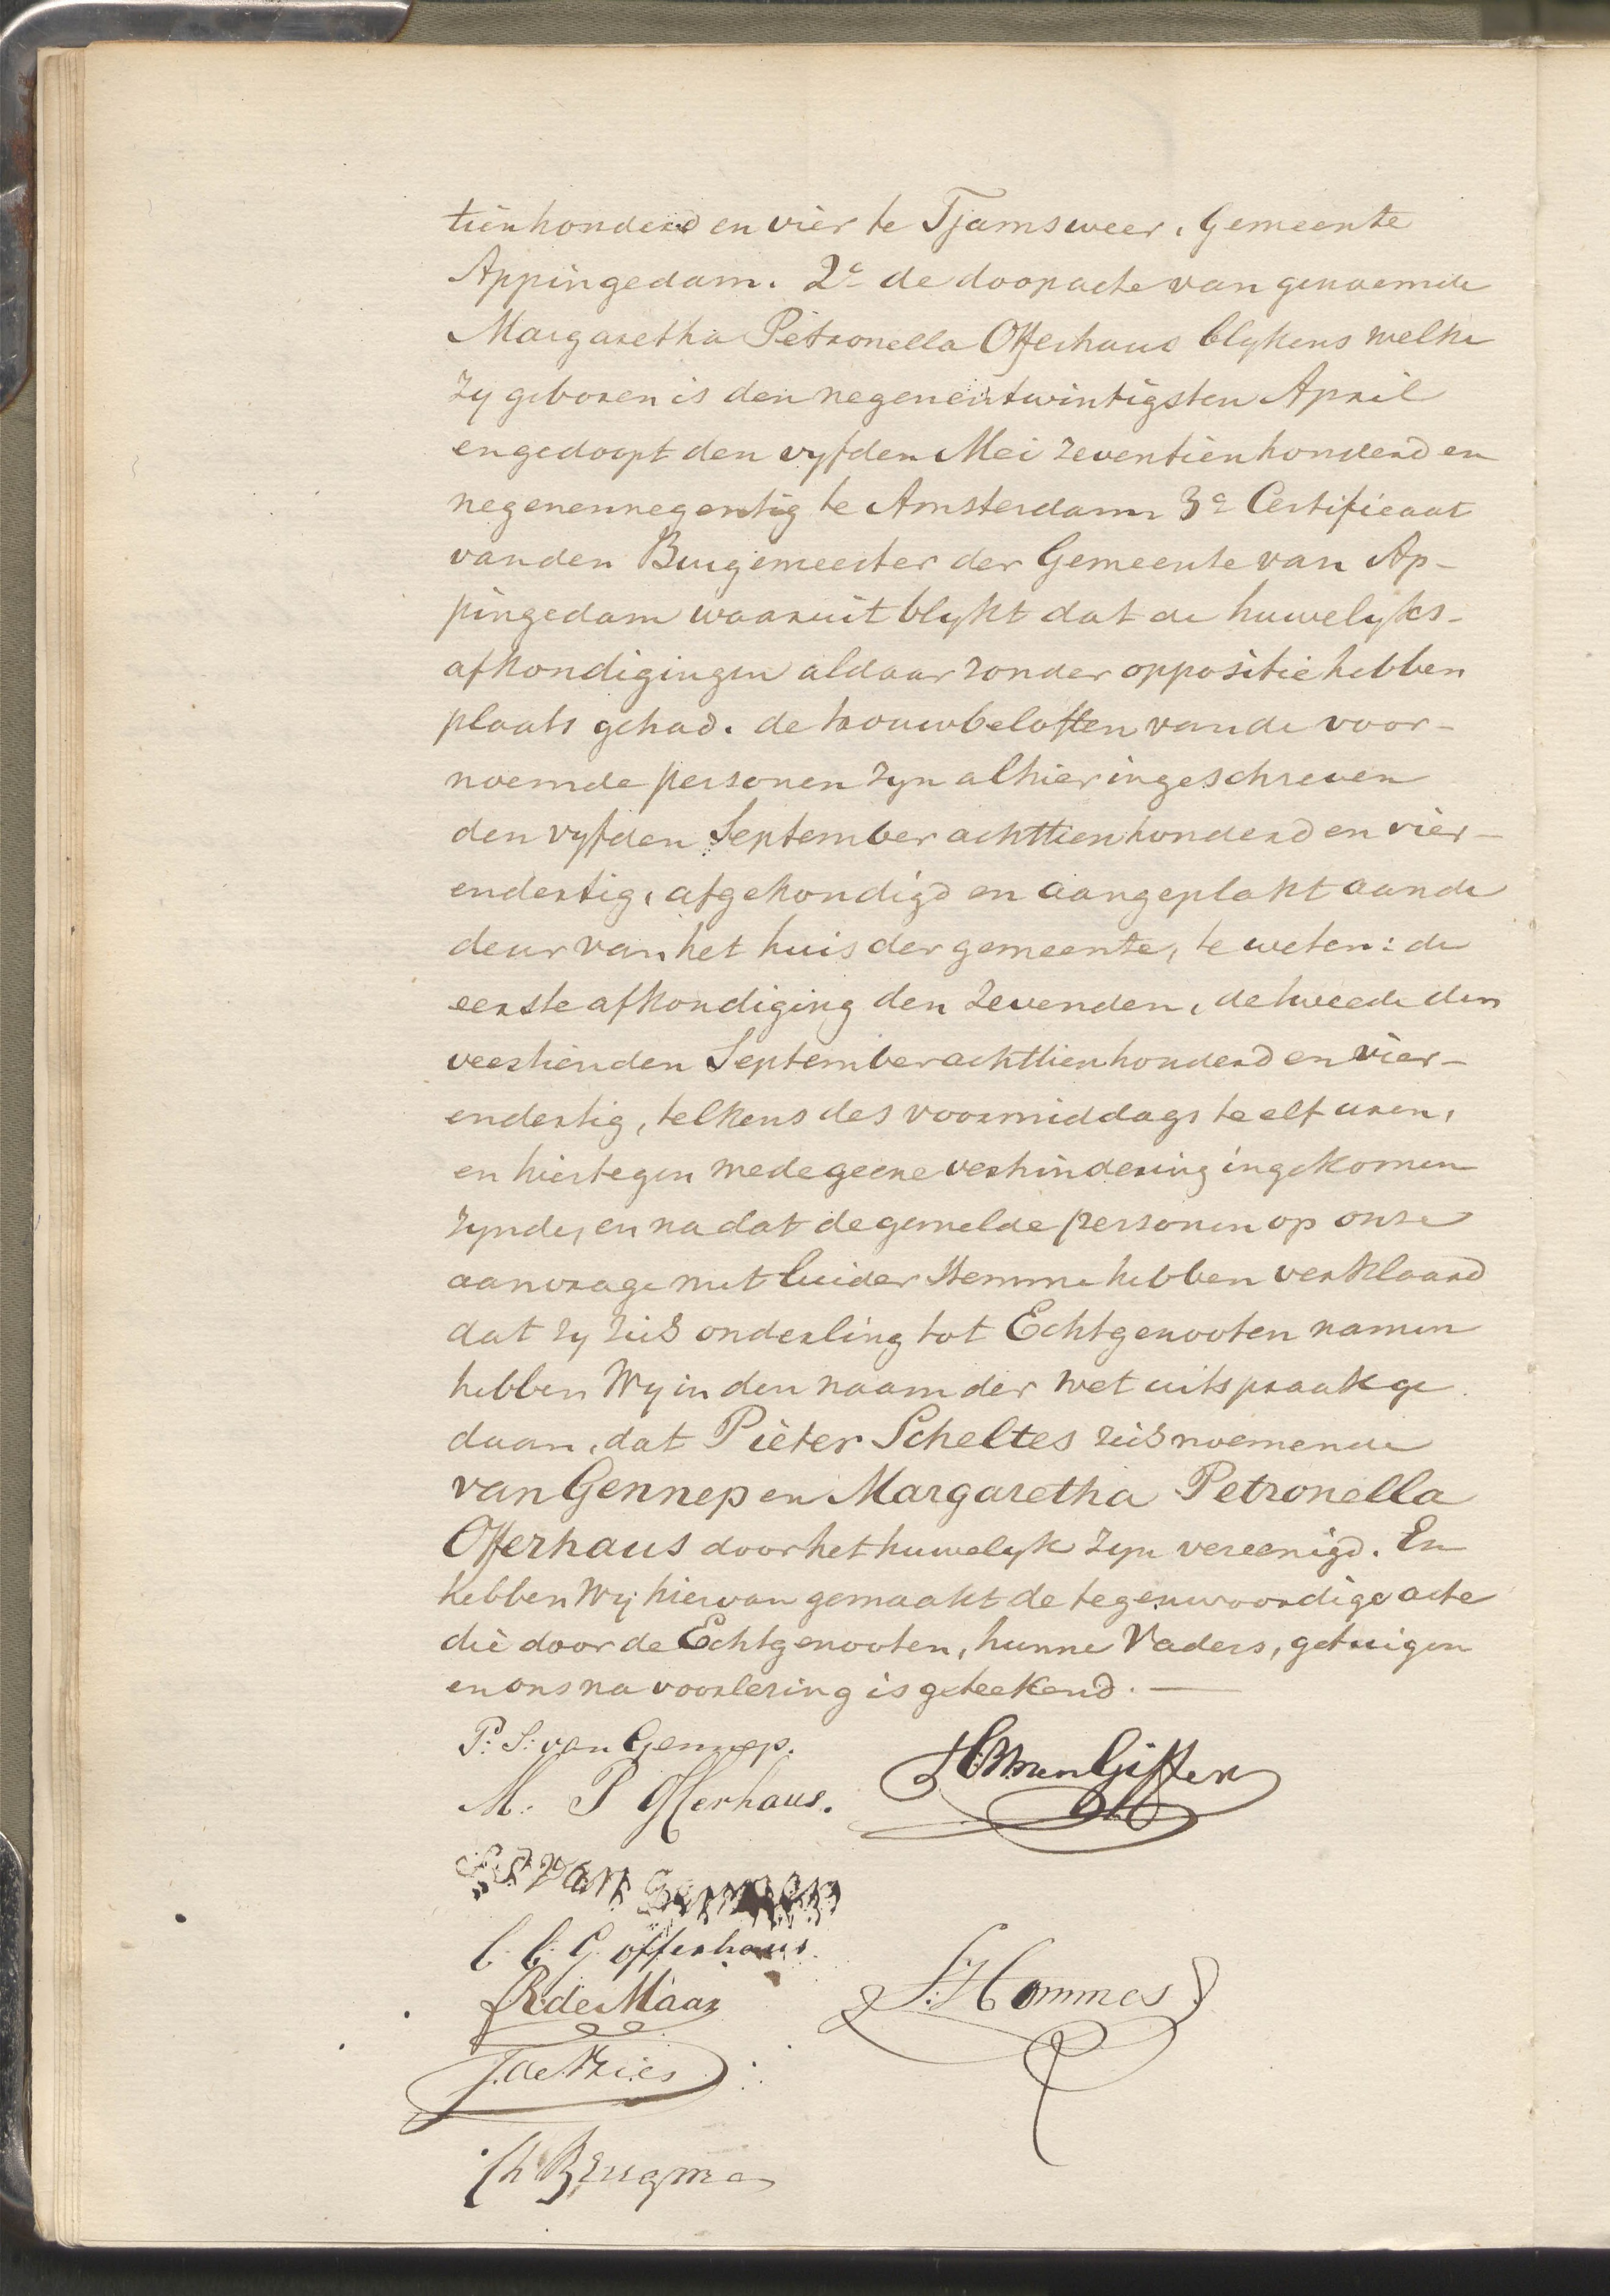 tienhonderd en vier te Tjamsweer, Gemeente
Appingedam. 2e de doopacte van genoemde
Margaretha Petronella Offerhaus blykens welke
zy geboren is den negenentwintigsten April
en gedoopt den vyfden Mei zeventienhonderd en
negenennegentig te Amsterdam 3e Certificaat
van den Burgemeester der Gemeente van Ap-
pingedam waaruit blykt dat de huwelyks-
afkondigingen aldaar zonder oppositie hebben
plaats gehad. de trouwbeloften van de voor-
noemde personen zyn alhier ingeschreven
den vyfden September achttienhonderd en vier-
endertig, afgekondigd en aangeplakt aan de
deur van het huis der gemeente, te weten: de
eerste afkondiging den zevenden, de tweede den
veertienden September achttienhonderd en vier-
endertig, telkens des voormiddags te elf uren,
en hiertegen mede geene verhindering ingekomen
zynde, en na dat de gemelde personen op onze
aanvrage met luider stemme hebben verklaard
dat zy zich onderling tot Echtgenooten namen
hebben Wy in den naam der wet uitspraak ge
daan, dat Pieter Scheltes zich noemende
van Gennep en Margaretha Petronella
Offerhaus door het huwelyk zyn vereenigd. En
hebben Wij hiervan gemaakt de tegenwoordige acte
die door de Echtgenooten, hunne Vaders, getuigen
en ons na voorlezing is geteekend. —
P: S: van Gennep.
M: P Offerhaus.
van Giffen
S S van Gennep
C. C. G. offerhaus.
R. de Maar
S. Hommes
J. de Vries
Th Brugma